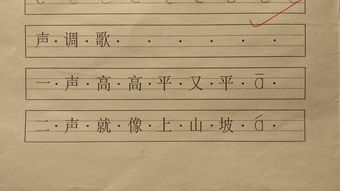 声·调·歌·
一·声·高·高·平·又·平·ā·
二·声·就·像·上·山·坡·á·